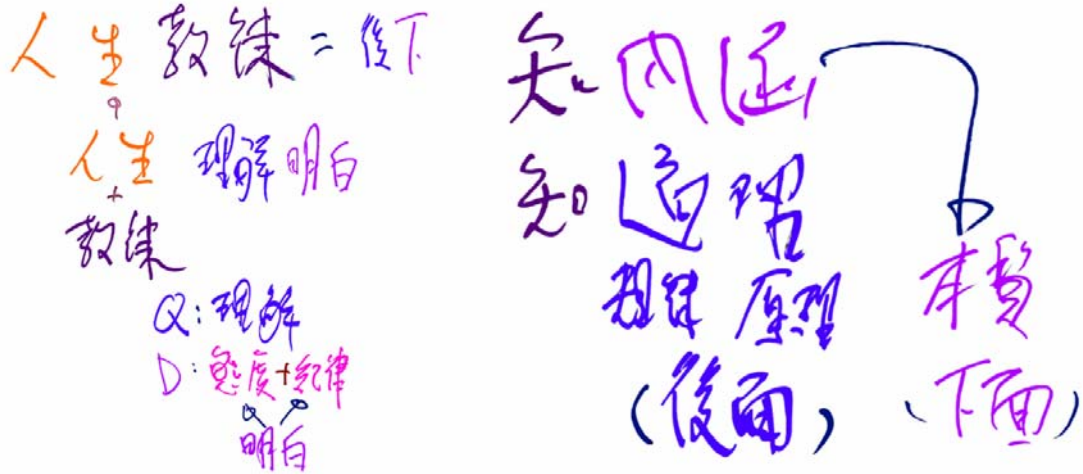 人生教練 = 後下
人生 理解明白
+
教練
Q: 理解
D: 態度+紀律
明白
知內涵
知道理
規律 原理 本質
(後面) (下面)